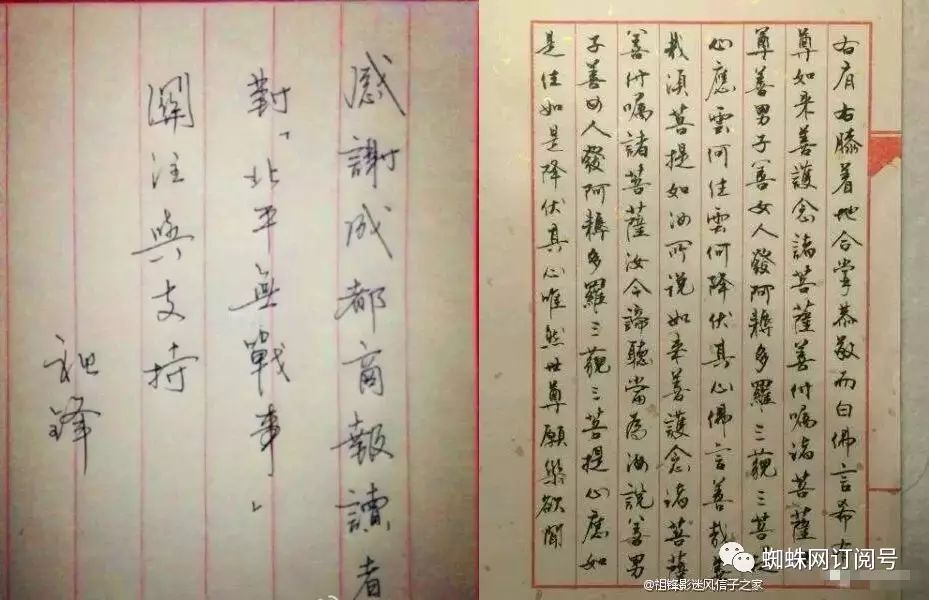 感謝成都商報讀者
對「北平無戰事」
關注與支持
祖鋒
右肩右膝着地合掌恭敬而白佛言希有
尊如来善護念諸菩薩善付囑諸菩薩
尊善男子善女人發阿耨多羅三藐三菩提
心應雲何住雲何降伏其心佛言善哉
哉須菩提如汝所说如来善護念诸菩薩
善付囑諸菩薩汝今諦聽當為汝說善男
子善女人發阿耨多羅三藐三菩提心應如
是住如是降伏其心唯然世尊願樂欲聞
蜘蛛网订阅号
@祖锋影迷风信子之家